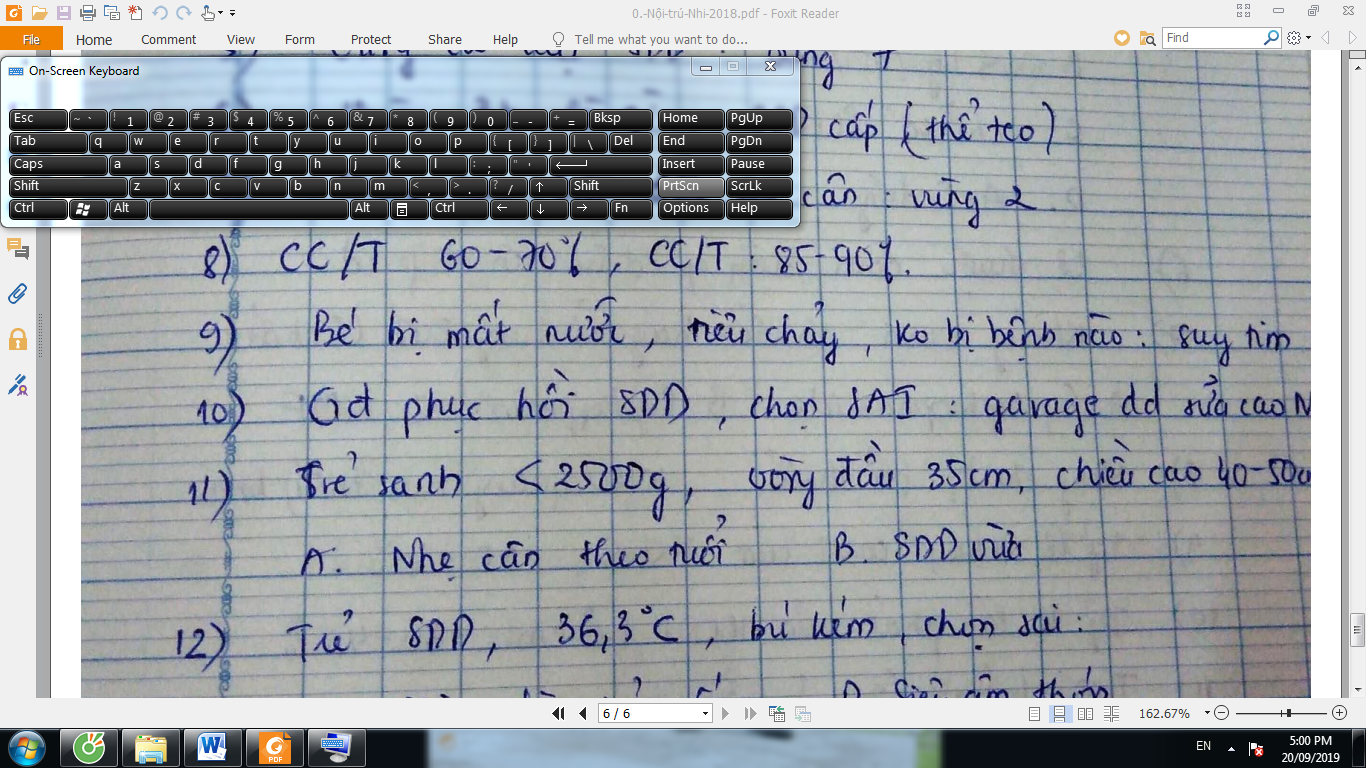 0.-Nội-trú-Nhi-2018.pdf - Foxit Reader
File Home Comment View Form Protect Share Help Tell me what you want to do... Find
On-Screen Keyboard
Esc ~ ` ! 1 @ 2 # 3 $ 4 % 5 ^ 6 & 7 * 8 ( 9 ) 0 _ - + = Bksp Home PgUp
Tab q w e r t y u i o p { [ } ] | \ Del End PgDn
Caps a s d f g h j k l : ; " ' Insert Pause
Shift z x c v b n m < , > . ? / Shift PrtScn ScrLk
Ctrl Alt Alt Ctrl Fn Options Help
cấp (thể teo)
cân : vùng 2
8) CC/T 60-70%, CC/T : 85-90%.
9) Bé bị mất nước, tiêu chảy, ko bị bệnh nào : suy tim
10) Gđ phục hồi SDD, chọn SAI : garage dd sửa cao N
11) Trẻ sanh < 2500g, vòng đầu 35cm, chiều cao 40-50c
A. Nhẹ cân theo tuổi B. SDD vừa
12) Trẻ SDD, 36,3°C, bú kém, chọn sai :
6 / 6 162.67%
EN 5:00 PM
20/09/2019